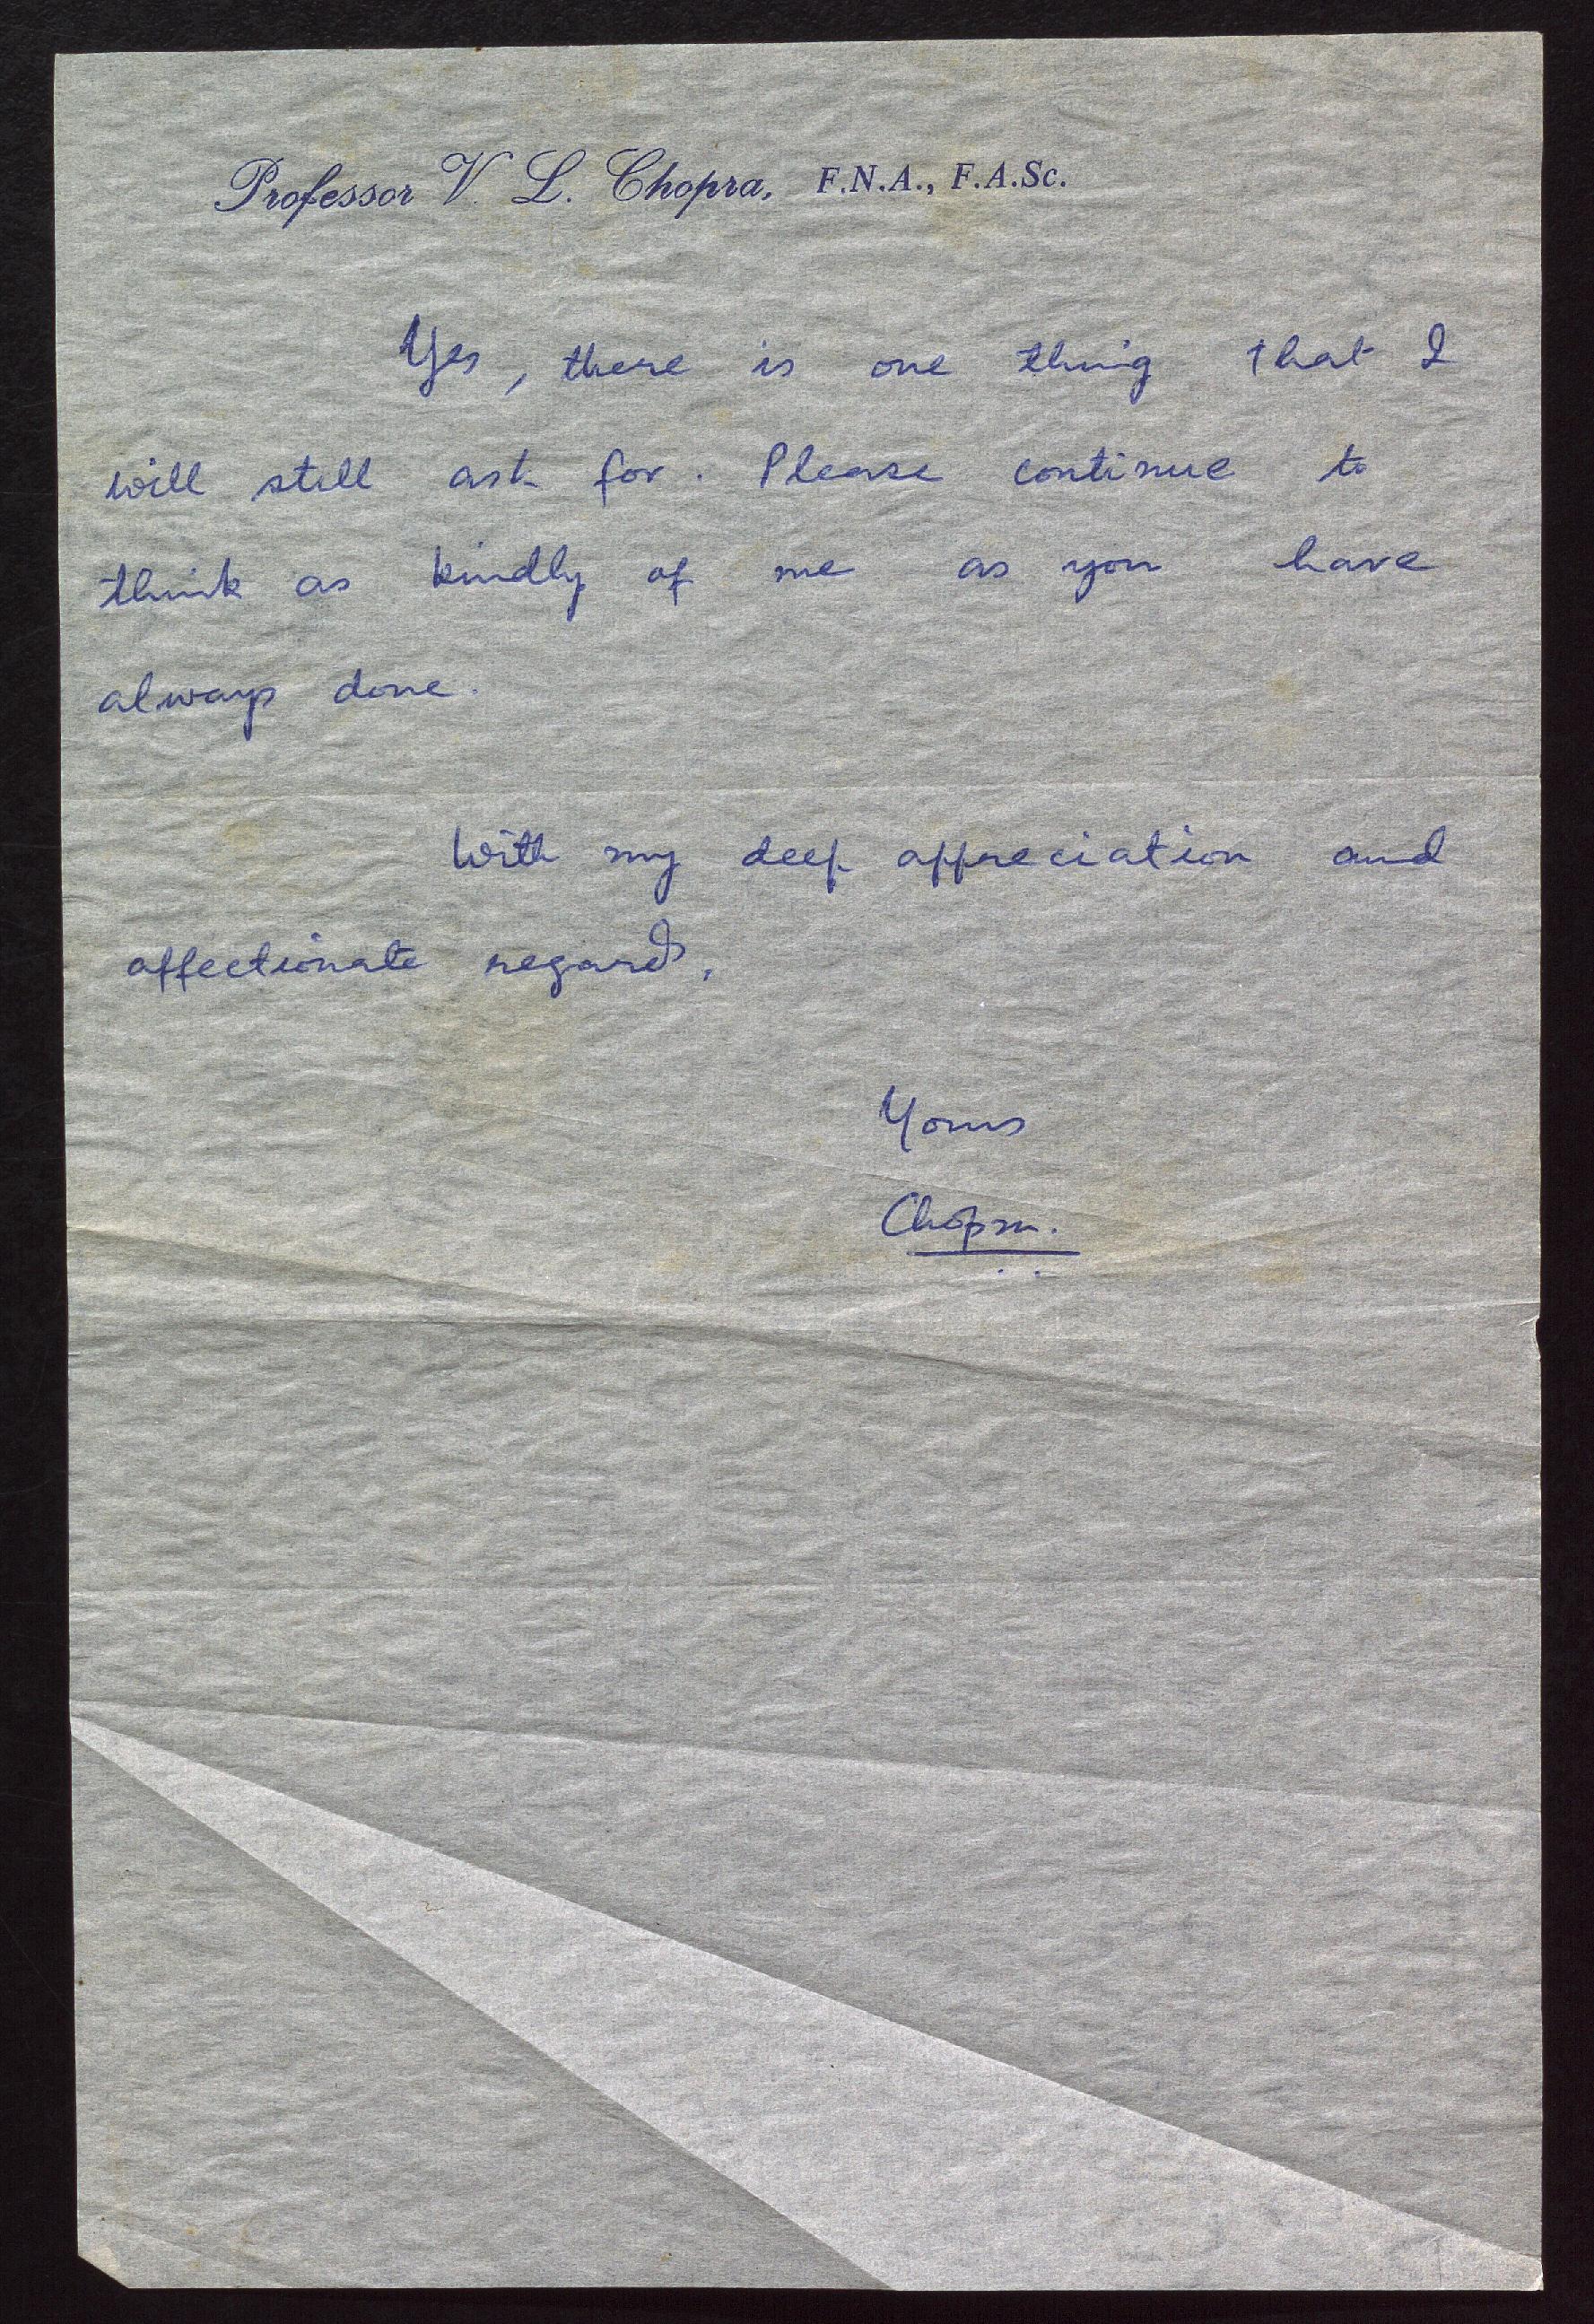 Professor V. L. Chopra, F.N.A., F.A.Sc.
Yes, there is one thing that I
will still ask for. Please continue to
think as kindly of me as you have
always done.
With my deep appreciation and
affectionate regards,
Yours
Chopra.